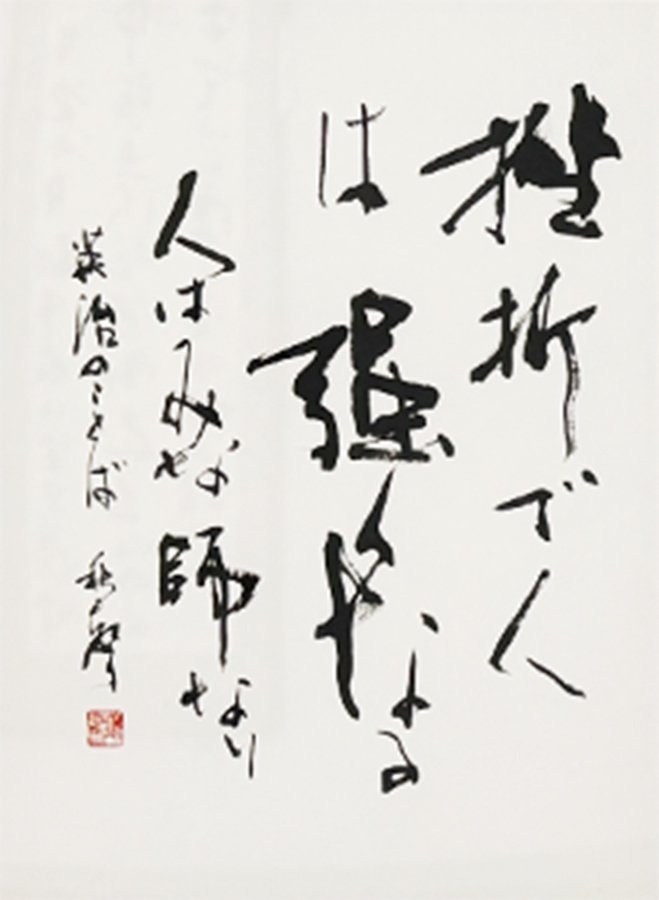 挫折で人
は強くなる
人はみな師なり
英治のことば